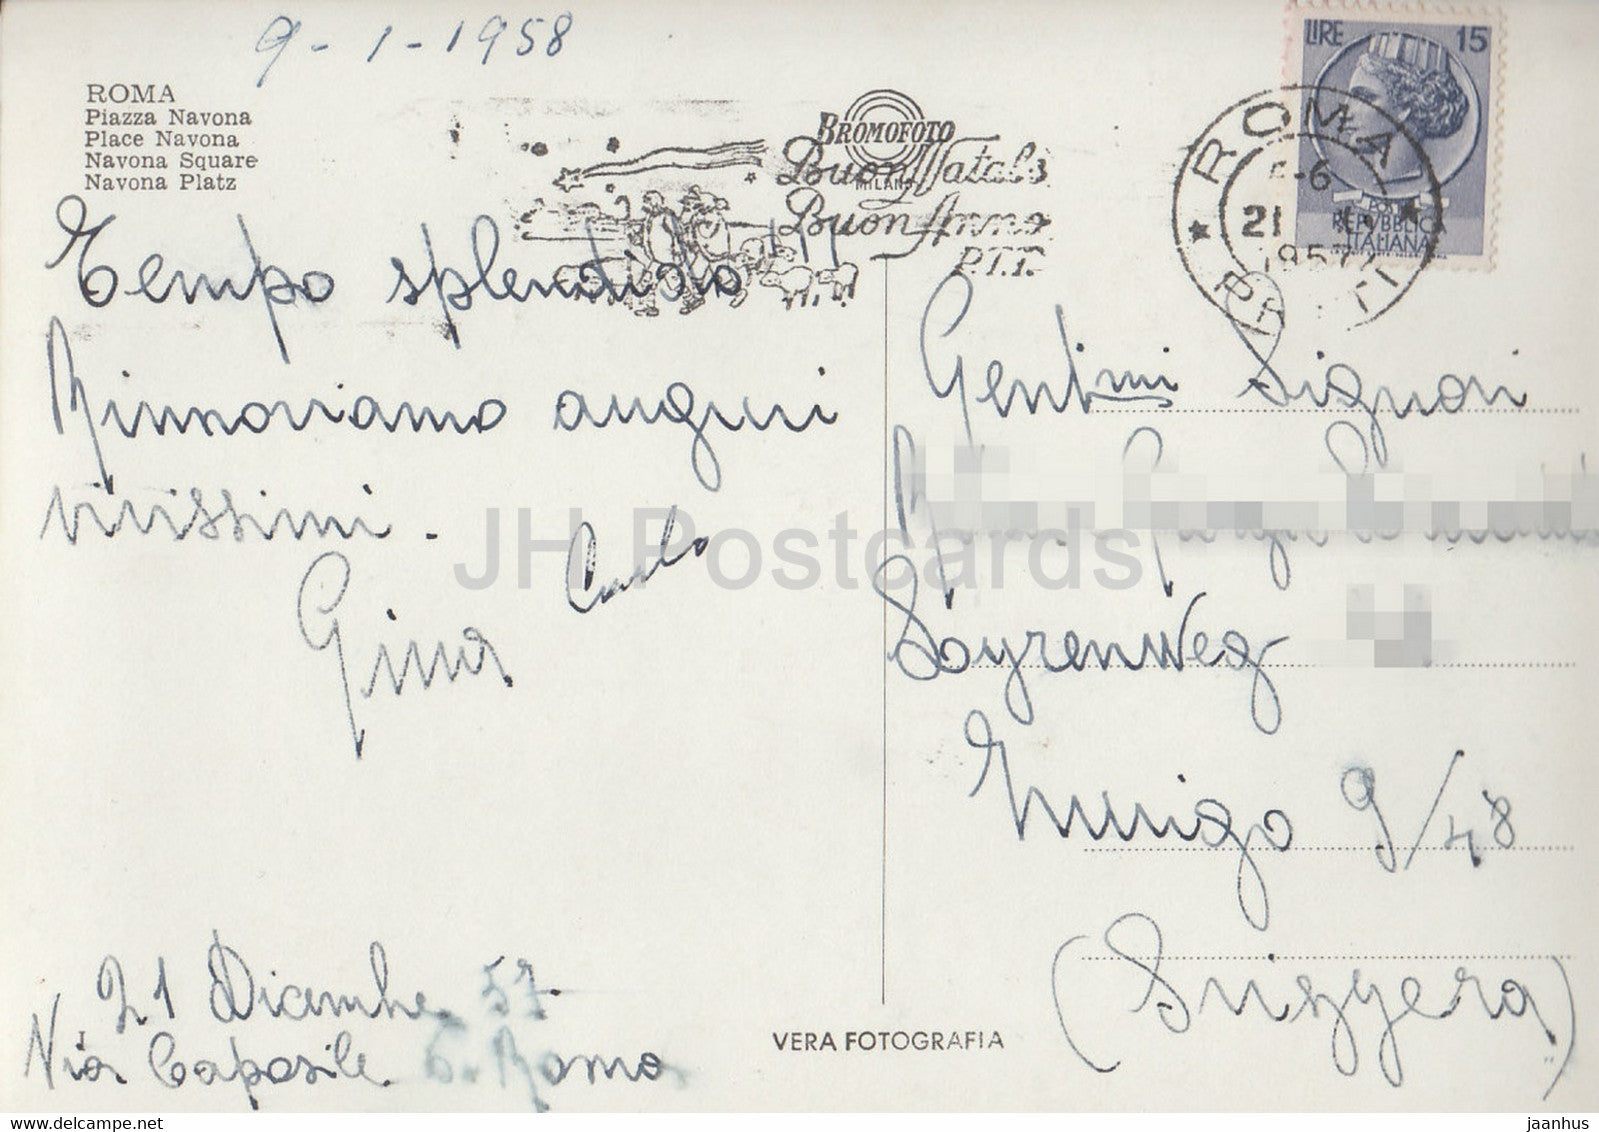 9-1-1958
ROMA
Piazza Navona
Place Navona
Navona Square
Navona Platz
BROMOFOTO
MILANO
Buon Natale
Buon Anno
P.T.T.
LIRE 15
REPVBBLICA
ITALIANA
ROMA
21
1957
PRATI
Tempo splendido !!
Rinnoviamo auguri
vivissimi.
Gina Carlo
Gentmi Signori
Zurigo 9/48
(Svizzera)
21 Dicembre 57
Via Caposile 6. Roma
VERA FOTOGRAFIA
JH Postcards
https://www.delcampe.net
jaanhus